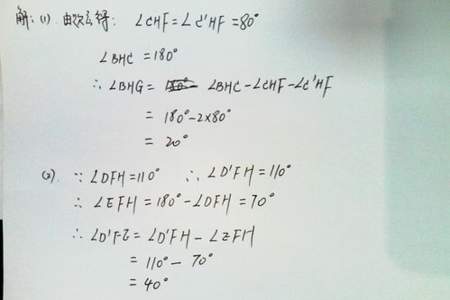 解：(1) 由题意得： ∠CHF = ∠C'HF = 80°
∠BHC = 180°
∴ ∠BHG = ∠BHC - ∠CHF - ∠C'HF
= 180° - 2×80°
= 20°
(2) ∵ ∠DFH = 110° ∴ ∠D'FH = 110°
∴ ∠EFH = 180° - ∠DFH = 70°
∴ ∠D'FE = ∠D'FH - ∠EFH
= 110° - 70°
= 40°